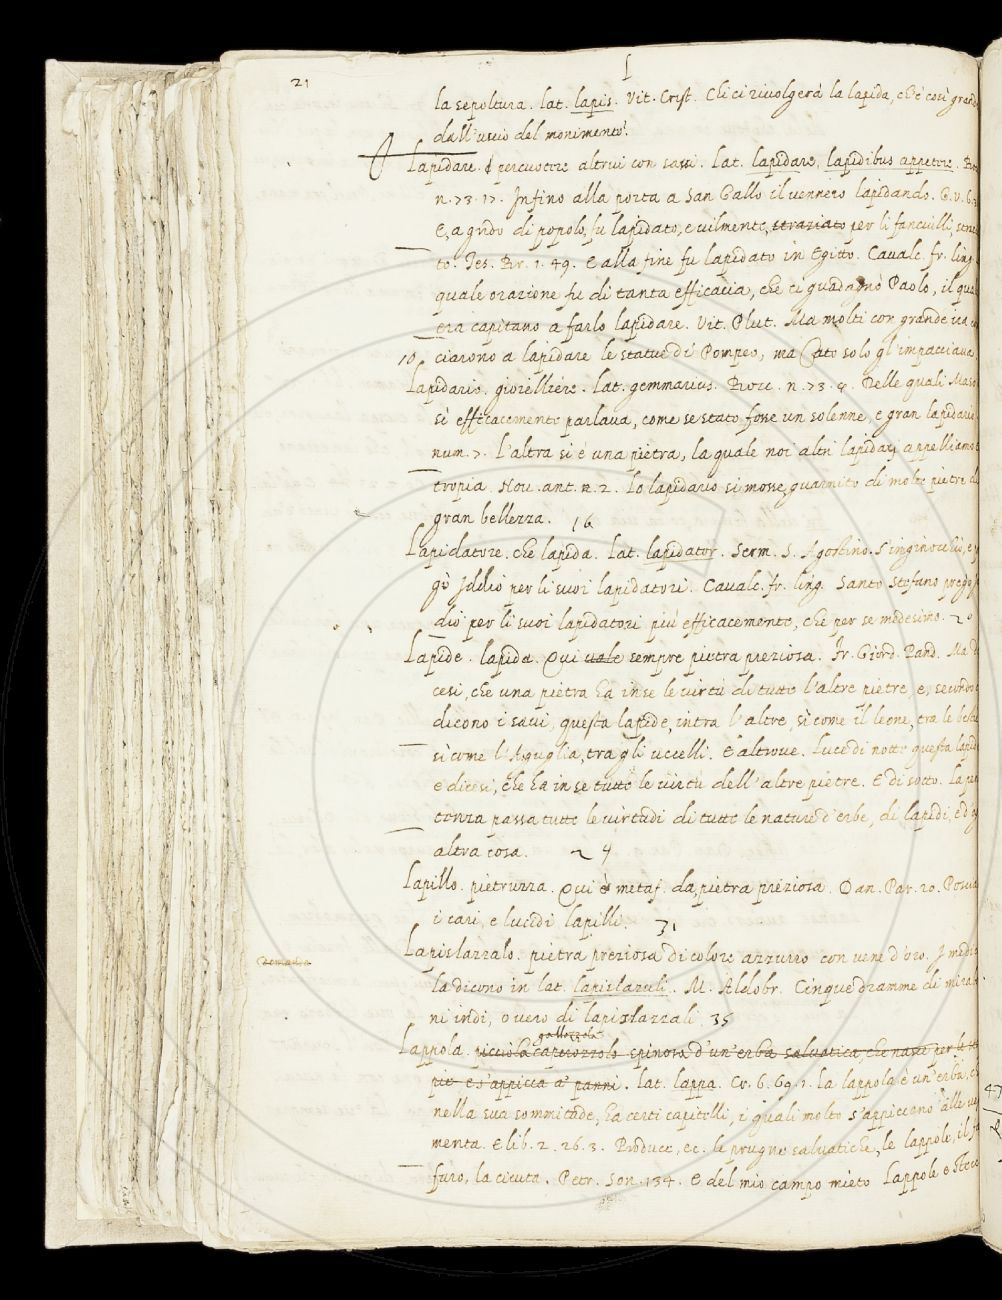 21
L
la sepoltura. lat. lapis. Vit. Crist. Chi ci rivolgerà la lapida, ch'è così grande
dall'uscio del monimento?
Lapidare. percuotere altrui con sassi. Lat. lapidare, lapidibus appetere.
n. 73. 17. Infino alla porta a San Gallo il vennero lapidando. G. v. 6.
E, a grido di popolo, fu lapidato, e vilmente, straziato per li fanciulli,
to. Tes. Br. 1. 49. E alla fine fu lapidato in Egitto. Cavalc. fr. ling.
quale orazione fu di tanta efficacia, che ci guadagnò Paolo, il quale
era capitano a farlo lapidare. Vit. Plut. Ma molti con grande ira
10. ciarono a lapidare le statue di Pompeo, ma Cato solo gl'impacciava.
Lapidario. gioielliere. lat. gemmarius. Bocc. n. 73. 4. Delle quali Maso
sì efficacemente parlava, come se stato fosse un solenne, e gran lapidario
num. 7. L'altra si è una pietra, la quale noi altri lapidarj appelliamo
tropia. Nov. ant. n. 2. Lo lapidario si mosse, guarnito di molte pietre di
gran bellezza. 16
Lapidatore. che lapida. lat. lapidator. Serm. S. Agostino. S'inginocchiò, e
gò Iddio per li suoi lapidatori. Cavalc. fr. ling. Santo Stefano pregò
dio per li suoi lapidatori più efficacemente, che per se medesimo. 20
Lapide. lapida. Qui vale sempre pietra preziosa. Fr. Giord. Pand. Ma
cesi, che una pietra ha in se le virtù di tutte l'altre pietre, e, secondo
dicono i savi, questa lapide, intra l'altre, sì come il leone, tra le bestie
sì come l'Aguglia, tra gli uccelli. E altrove. Lucedi notte questa lapide
e dicesi, che ha in se tutte le virtù dell'altre pietre. E di sotto. La
tenza passa tutte le virtudi di tutte le nature d'erbe, di lapidi, e d'
altra cosa. 24
Lapillo. pietruzza. Qui è metaf. da pietra preziosa. Dan. Par. 20. Poscia
i cari, e lucidi lapilli. 31
Lapislazzalo. pietra preziosa di colore azzurro con vene d'oro. I medici
la dicono in lat. lapislazuli. M. Aldobr. Cinque dramme di
ni indi, o vero di lapislazzali 35
gallozzola
Lappola. picciola spinosa d'un'erba salvatica che nasce per le
pie e s'appicca a' panni. lat. lappa. Cr. 6. 69. 1. La lappola è un'erba,
nella sua sommitade, ha certi capitelli, i quali molto s'appiccano alle
menta. E lib. 2. 26. 3. Produce, ec. le prugne salvatiche, le lappole, il
furo, la cicuta. Petr. Son. 134. E del mio campo mieto Lappole e stecchi